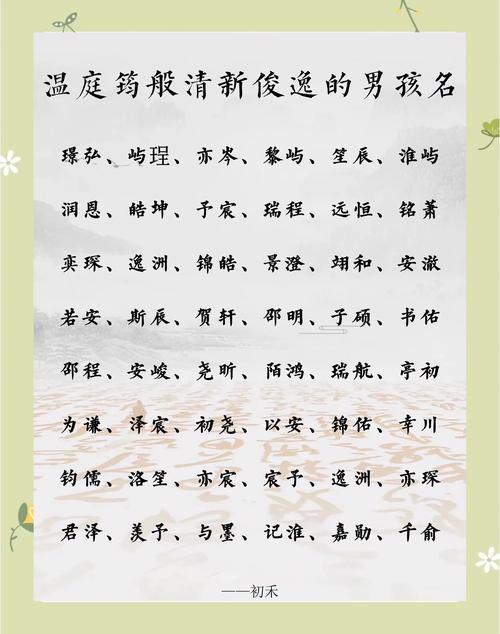 温庭筠般清新俊逸的男孩名
璟弘、屿珵、亦岑、黎屿、笙辰、淮屿
润恩、皓坤、予宸、瑞程、远恒、铭萧
奕琛、逸洲、锦皓、景澄、翊和、安澈
若安、斯辰、贺轩、邵明、子硕、书佑
邵程、安峻、尧昕、陌鸿、瑞航、亭初
为谦、泽宸、初尧、以安、锦佑、幸川
钧儒、洛笙、亦宸、宸予、逸洲、亦琛
君泽、羡予、与墨、记淮、嘉勋、千俞
——初禾